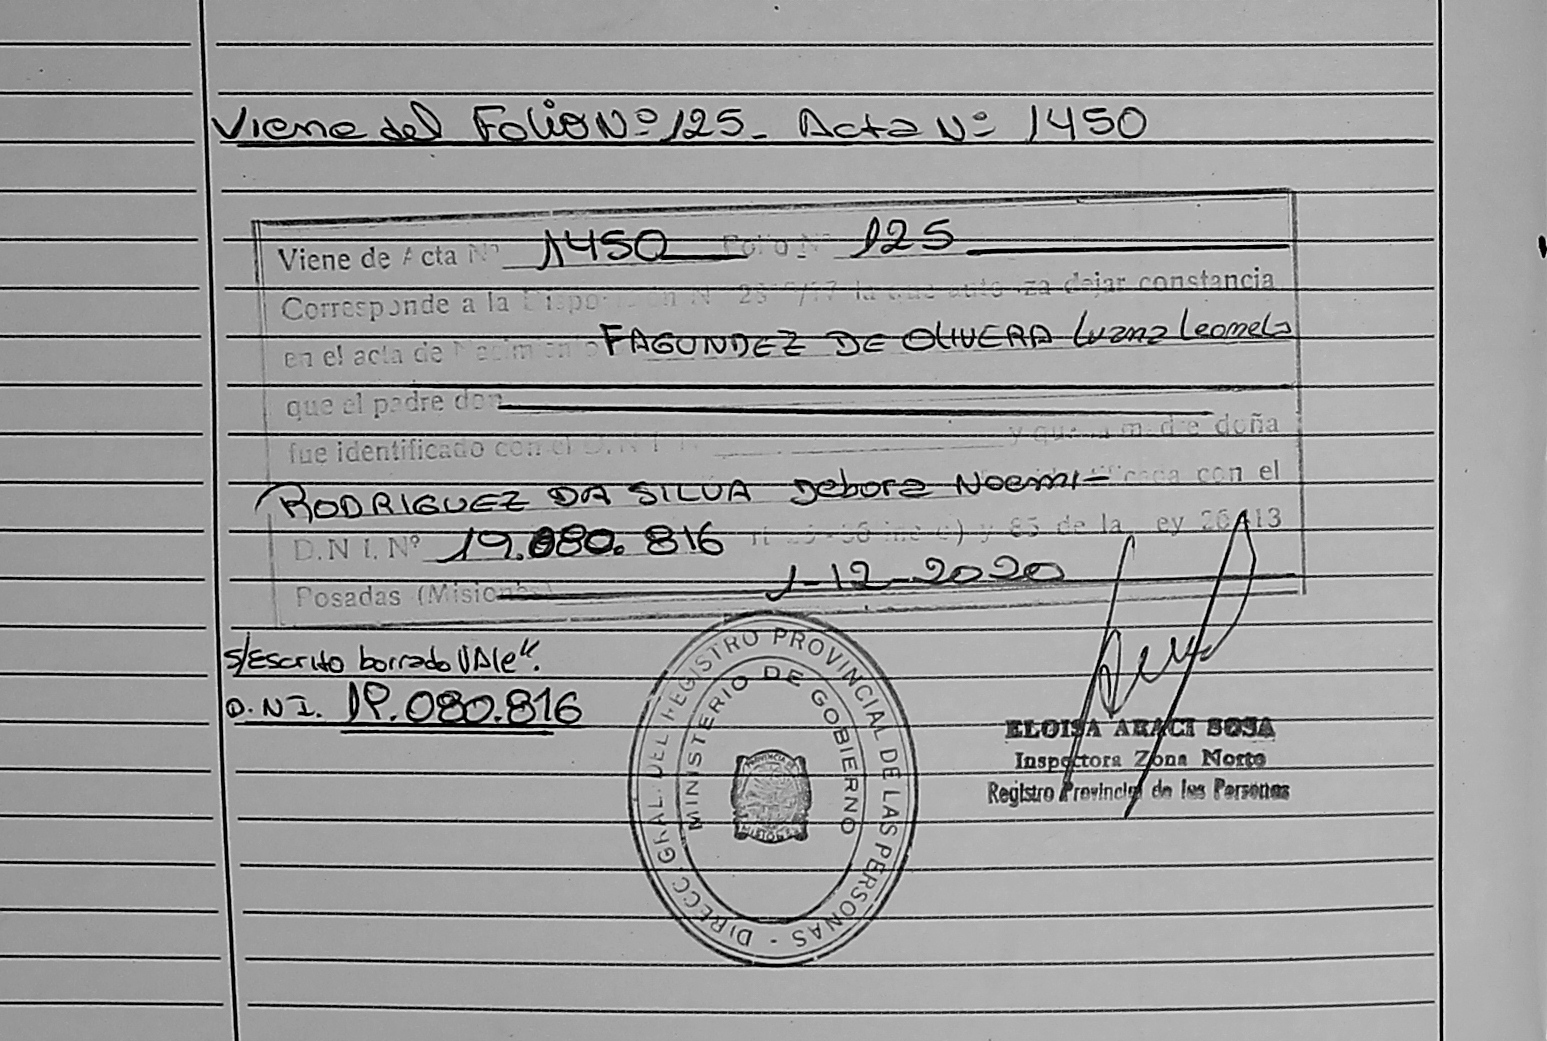 Viene del Folio Nº 125- Acta Nº 1450
Viene de Acta Nº 1450 Folio Nº 125
Corresponde a la la que autoriza dejar constancia
en el acta de Nacimiento FAGUNDEZ DE OLIVERA Luana Leonela
que el padre don
fue identificado con el D.N.I. y que la madre doña
RODRIGUEZ DA SILVA Debora Noemi- con el
D.N.I. Nº 19.080.816 de la Ley 26413
Posadas (Misiones) 1-12-2020
S/Escrito borrado VAle".
D.N.I. 19.080.816
DIRECC. GRAL. DEL REGISTRO PROVINCIAL DE LAS PERSONAS -
MINISTERIO DE GOBIERNO
ELOISA ARACI SOSA
Inspectora Zona Norte
Registro Provincial de las Personas